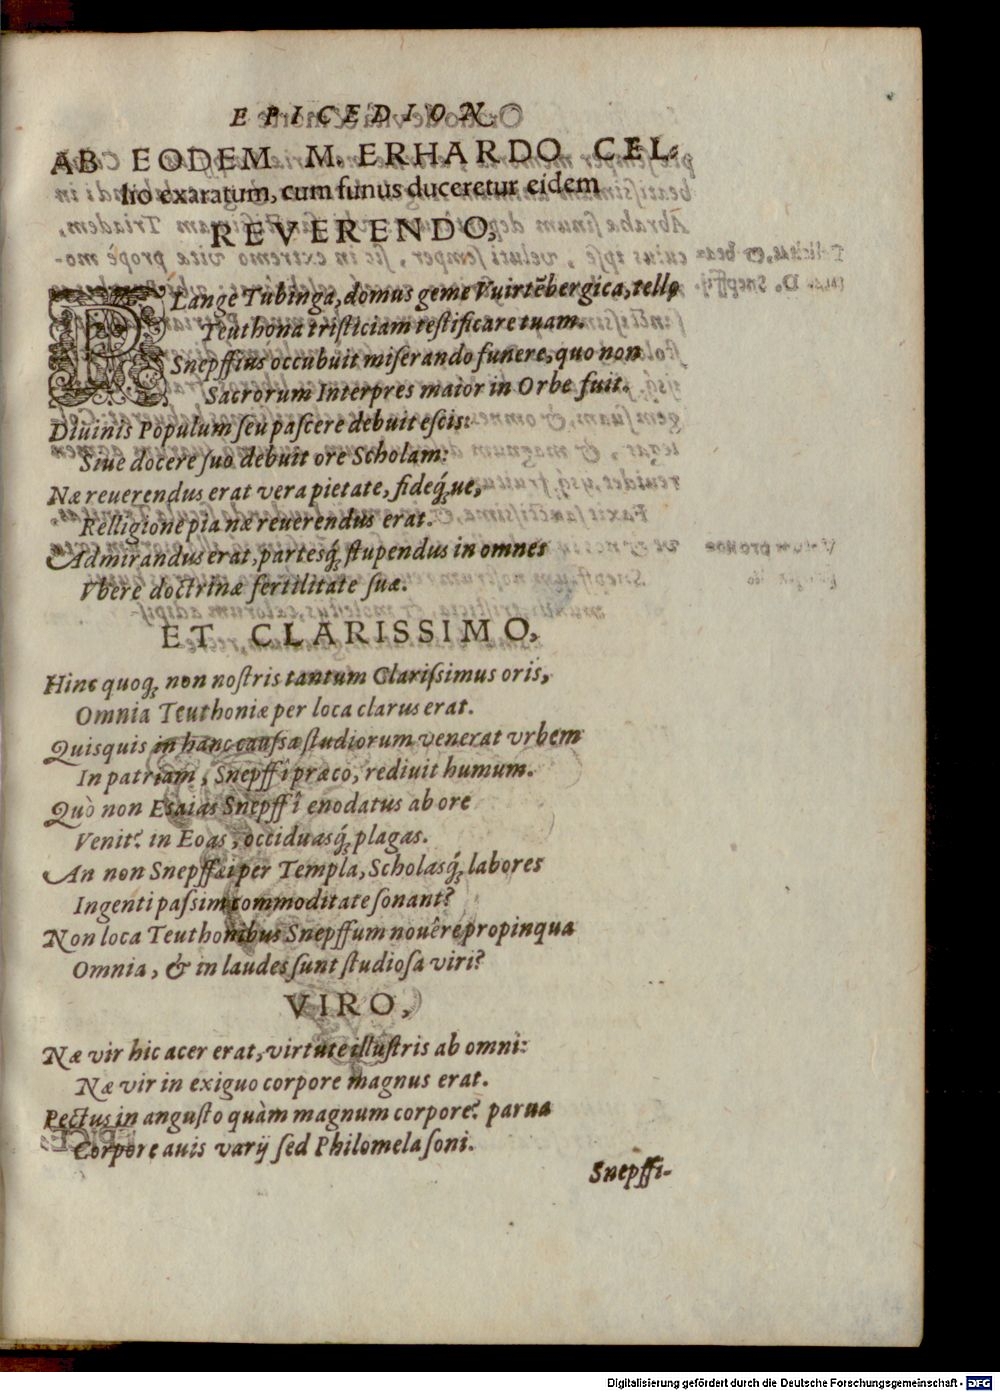 EPICEDION
AB EODEM M. ERHARDO CEL-
lio exaratum, cum funus duceretur eidem
REVERENDO,
PLange Tubinga, domus geme VuirtẽbergiCa, tellꝰ
Teuthona tristiciam testificare tuam.
Snepffius occubuit miserando funere, quo non
Sacrorum Interpres maior in Orbe fuit.
Diuinis Populum seu pascere debuit escis:
Siue docere suo debuit ore Scholam:
Næ reuerendus erat vera pietate, fideq́ue,
Relligione pia næ reuerendus erat.
Admirandus erat, partesq́; stupendus in omnes
Vbere doctrinæ fertilitate suæ.
ET CLARISSIMO,
Hinc quoq; non nostris tantum Clarissimus oris,
Omnia Teuthoniæ per loca clarus erat.
Quisquis in hanc caussa studiorum venerat vrbem
In patriam, Snepffî præco, rediuit humum.
Quò non Esaias Snepffî enodatus ab ore
Venit? in Eoas, occiduasq́; plagas.
An non Snepffæi per Templa, Scholasq́; labores
Ingenti passim commoditate sonant?
Non loca Teuthonibus Snepffum nouêre propinqua
Omnia, & in laudes sunt studiosa viri?
VIRO,
Næ vir hic acer erat, virtute illustris ab omni:
Næ vir in exiguo corpore magnus erat.
Pectus in angusto quàm magnum corpore? parua
Corpore auis varij sed Philomela soni.
Snepffi-
Digitalisierung gefördert durch die Deutsche Forschungsgemeinschaft - DFG